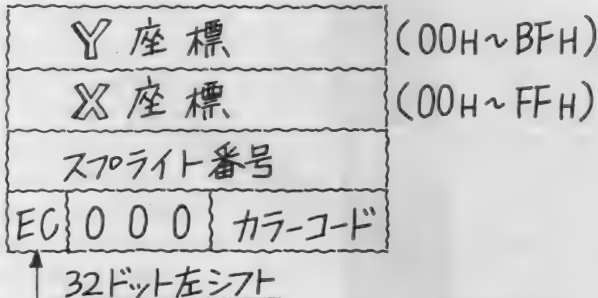 Y座標 (00H~BFH)
X座標 (00H~FFH)
スプライト番号
EC 0 0 0 カラーコード
32ドット左シフト